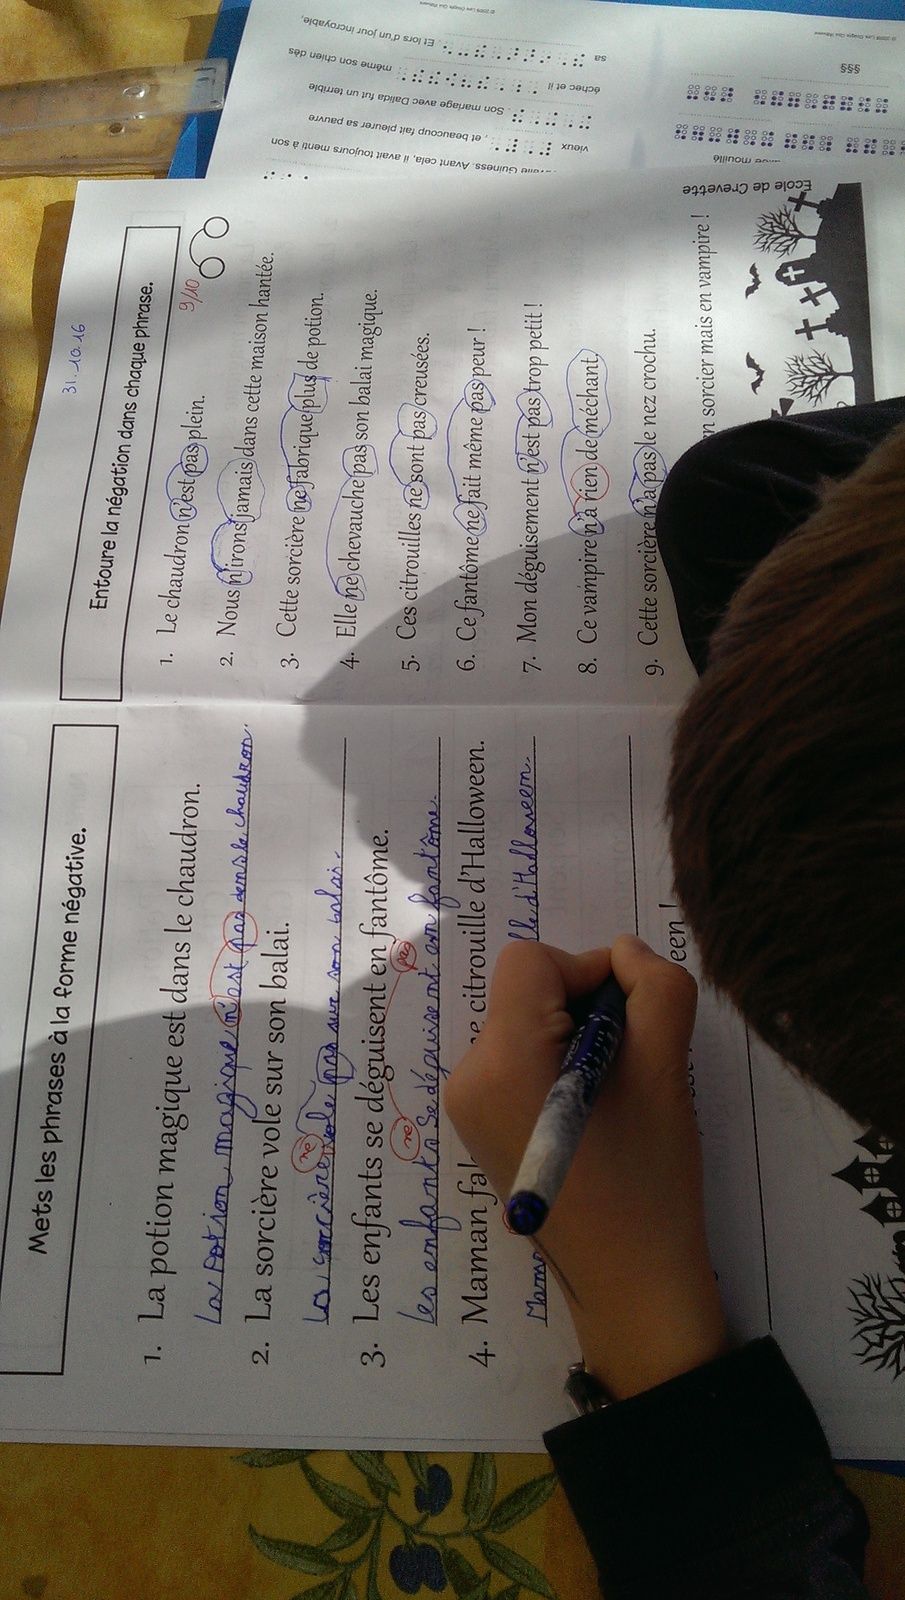 Mets les phrases à la forme négative.
1. La potion magique est dans le chaudron.
La potion magique n'est pas dans le chaudron.
2. La sorcière vole sur son balai.
La sorcière vole pas sur son balai.
ne
3. Les enfants se déguisent en fantôme.
Les enfants se déguisent en fantôme.
ne pas
4. Maman citrouille d'Halloween.
d'Halloween.
31.10.16
Entoure la négation dans chaque phrase.
9/10
1. Le chaudron n'est pas plein.
2. Nous n'irons jamais dans cette maison hantée.
3. Cette sorcière ne fabrique plus de potion.
4. Elle ne chevauche pas son balai magique.
5. Ces citrouilles ne sont pas creusées.
6. Ce fantôme ne fait même pas peur !
7. Mon déguisement n'est pas trop petit !
8. Ce vampire n'a rien de méchant.
9. Cette sorcière n'a pas le nez crochu.
sorcier mais en vampire !
Ecole de Crevette
Guiness. Avant cela, il avait toujours menti à son
vieux , et beaucoup fait pleurer sa pauvre
. Son mariage avec Dalida fut un terrible
échec et il même son chien dès
sa . Et lors d'un jour incroyable,
mouillé
§§§